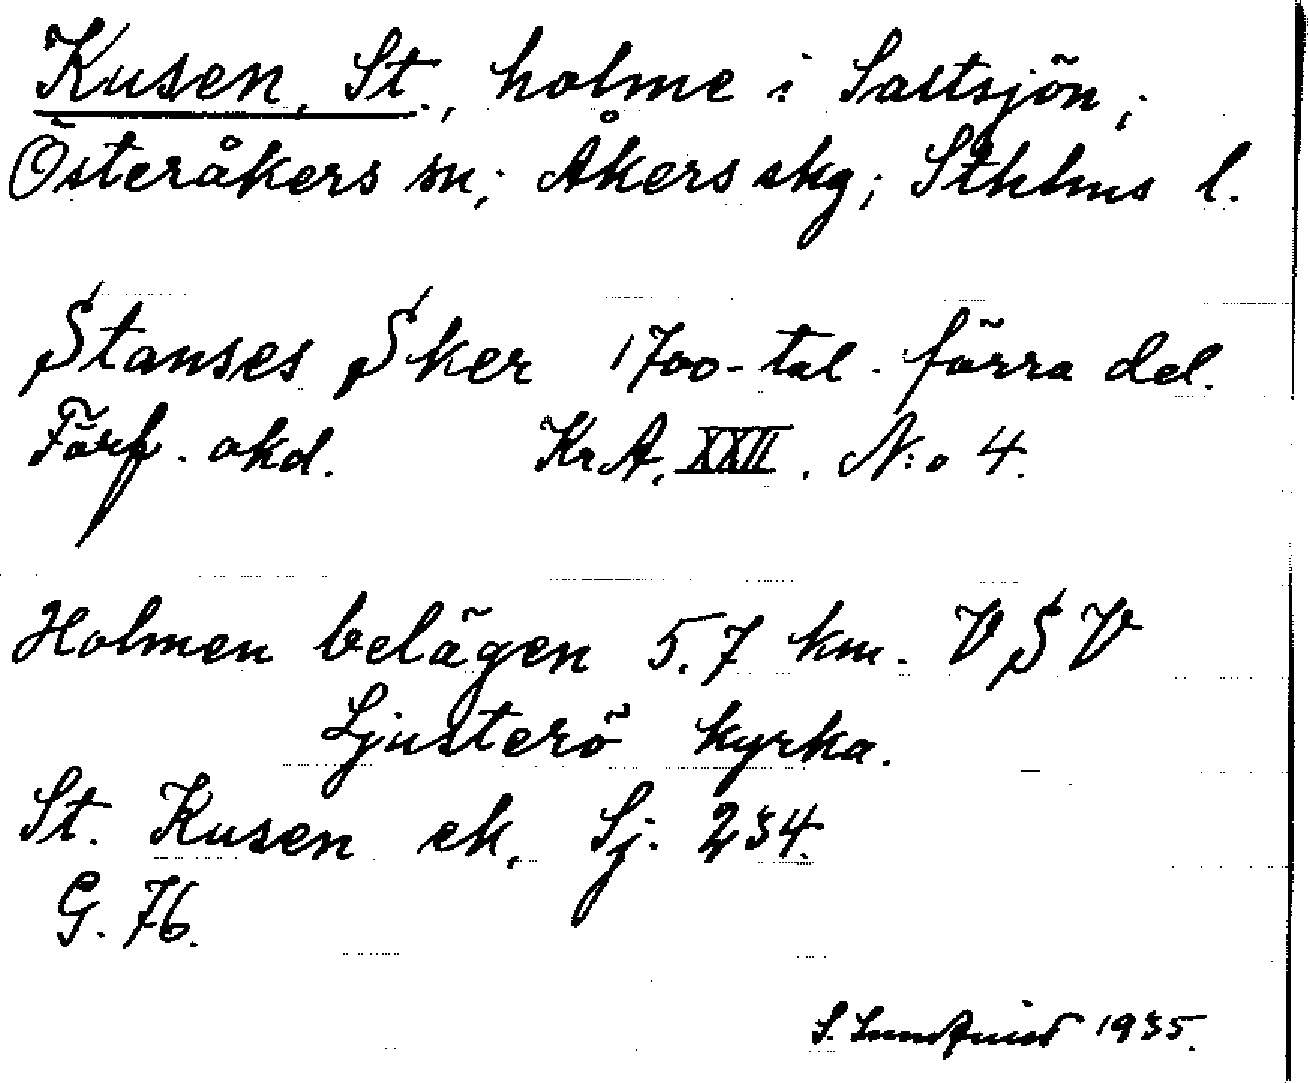 Kusen, St., holme i Saltsjön;
Österåkers sn; Åkers skg; Sthlms l.
Stanses Sker 1700-tal. förra del.
Förf. okd. KrA, XXII. N:o 4.
Holmen belägen 5.7 km. VSV
Ljusterö kyrka.
St. Kusen ek. Sj. 234.
G. 76.
S. Lundqvist 1935.